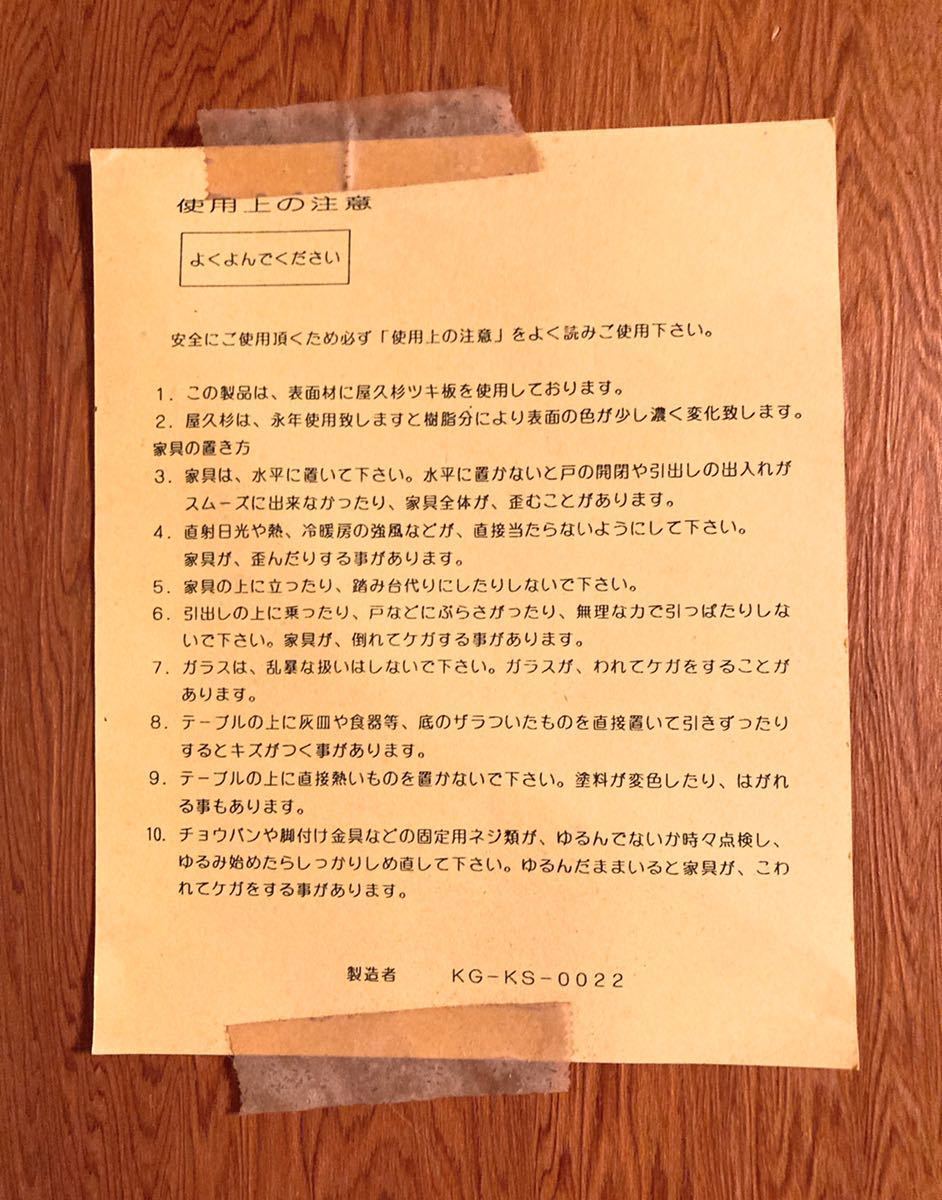 使用上の注意
よくよんでください
安全にご使用頂くため必ず「使用上の注意」をよく読みご使用下さい。
1. この製品は、表面材に屋久杉ツキ板を使用しております。
2. 屋久杉は、永年使用致しますと樹脂分により表面の色が少し濃く変化致します。
家具の置き方
3. 家具は、水平に置いて下さい。水平に置かないと戸の開閉や引出しの出入れが
スムーズに出来なかったり、家具全体が、歪むことがあります。
4. 直射日光や熱、冷暖房の強風などが、直接当たらないようにして下さい。
家具が、歪んだりする事があります。
5. 家具の上に立ったり、踏み台代りにしたりしないで下さい。
6. 引出しの上に乗ったり、戸などにぶらさがったり、無理な力で引っぱたりしな
いで下さい。家具が、倒れてケガする事があります。
7. ガラスは、乱暴な扱いはしないで下さい。ガラスが、われてケガをすることが
あります。
8. テーブルの上に灰皿や食器等、底のザラついたものを直接置いて引きずったり
するとキズがつく事があります。
9. テーブルの上に直接熱いものを置かないで下さい。塗料が変色したり、はがれ
る事もあります。
10. チョウバンや脚付け金具などの固定用ネジ類が、ゆるんでないか時々点検し、
ゆるみ始めたらしっかりしめ直して下さい。ゆるんだままいると家具が、こわ
れてケガをする事があります。
製造者 KG-KS-0022